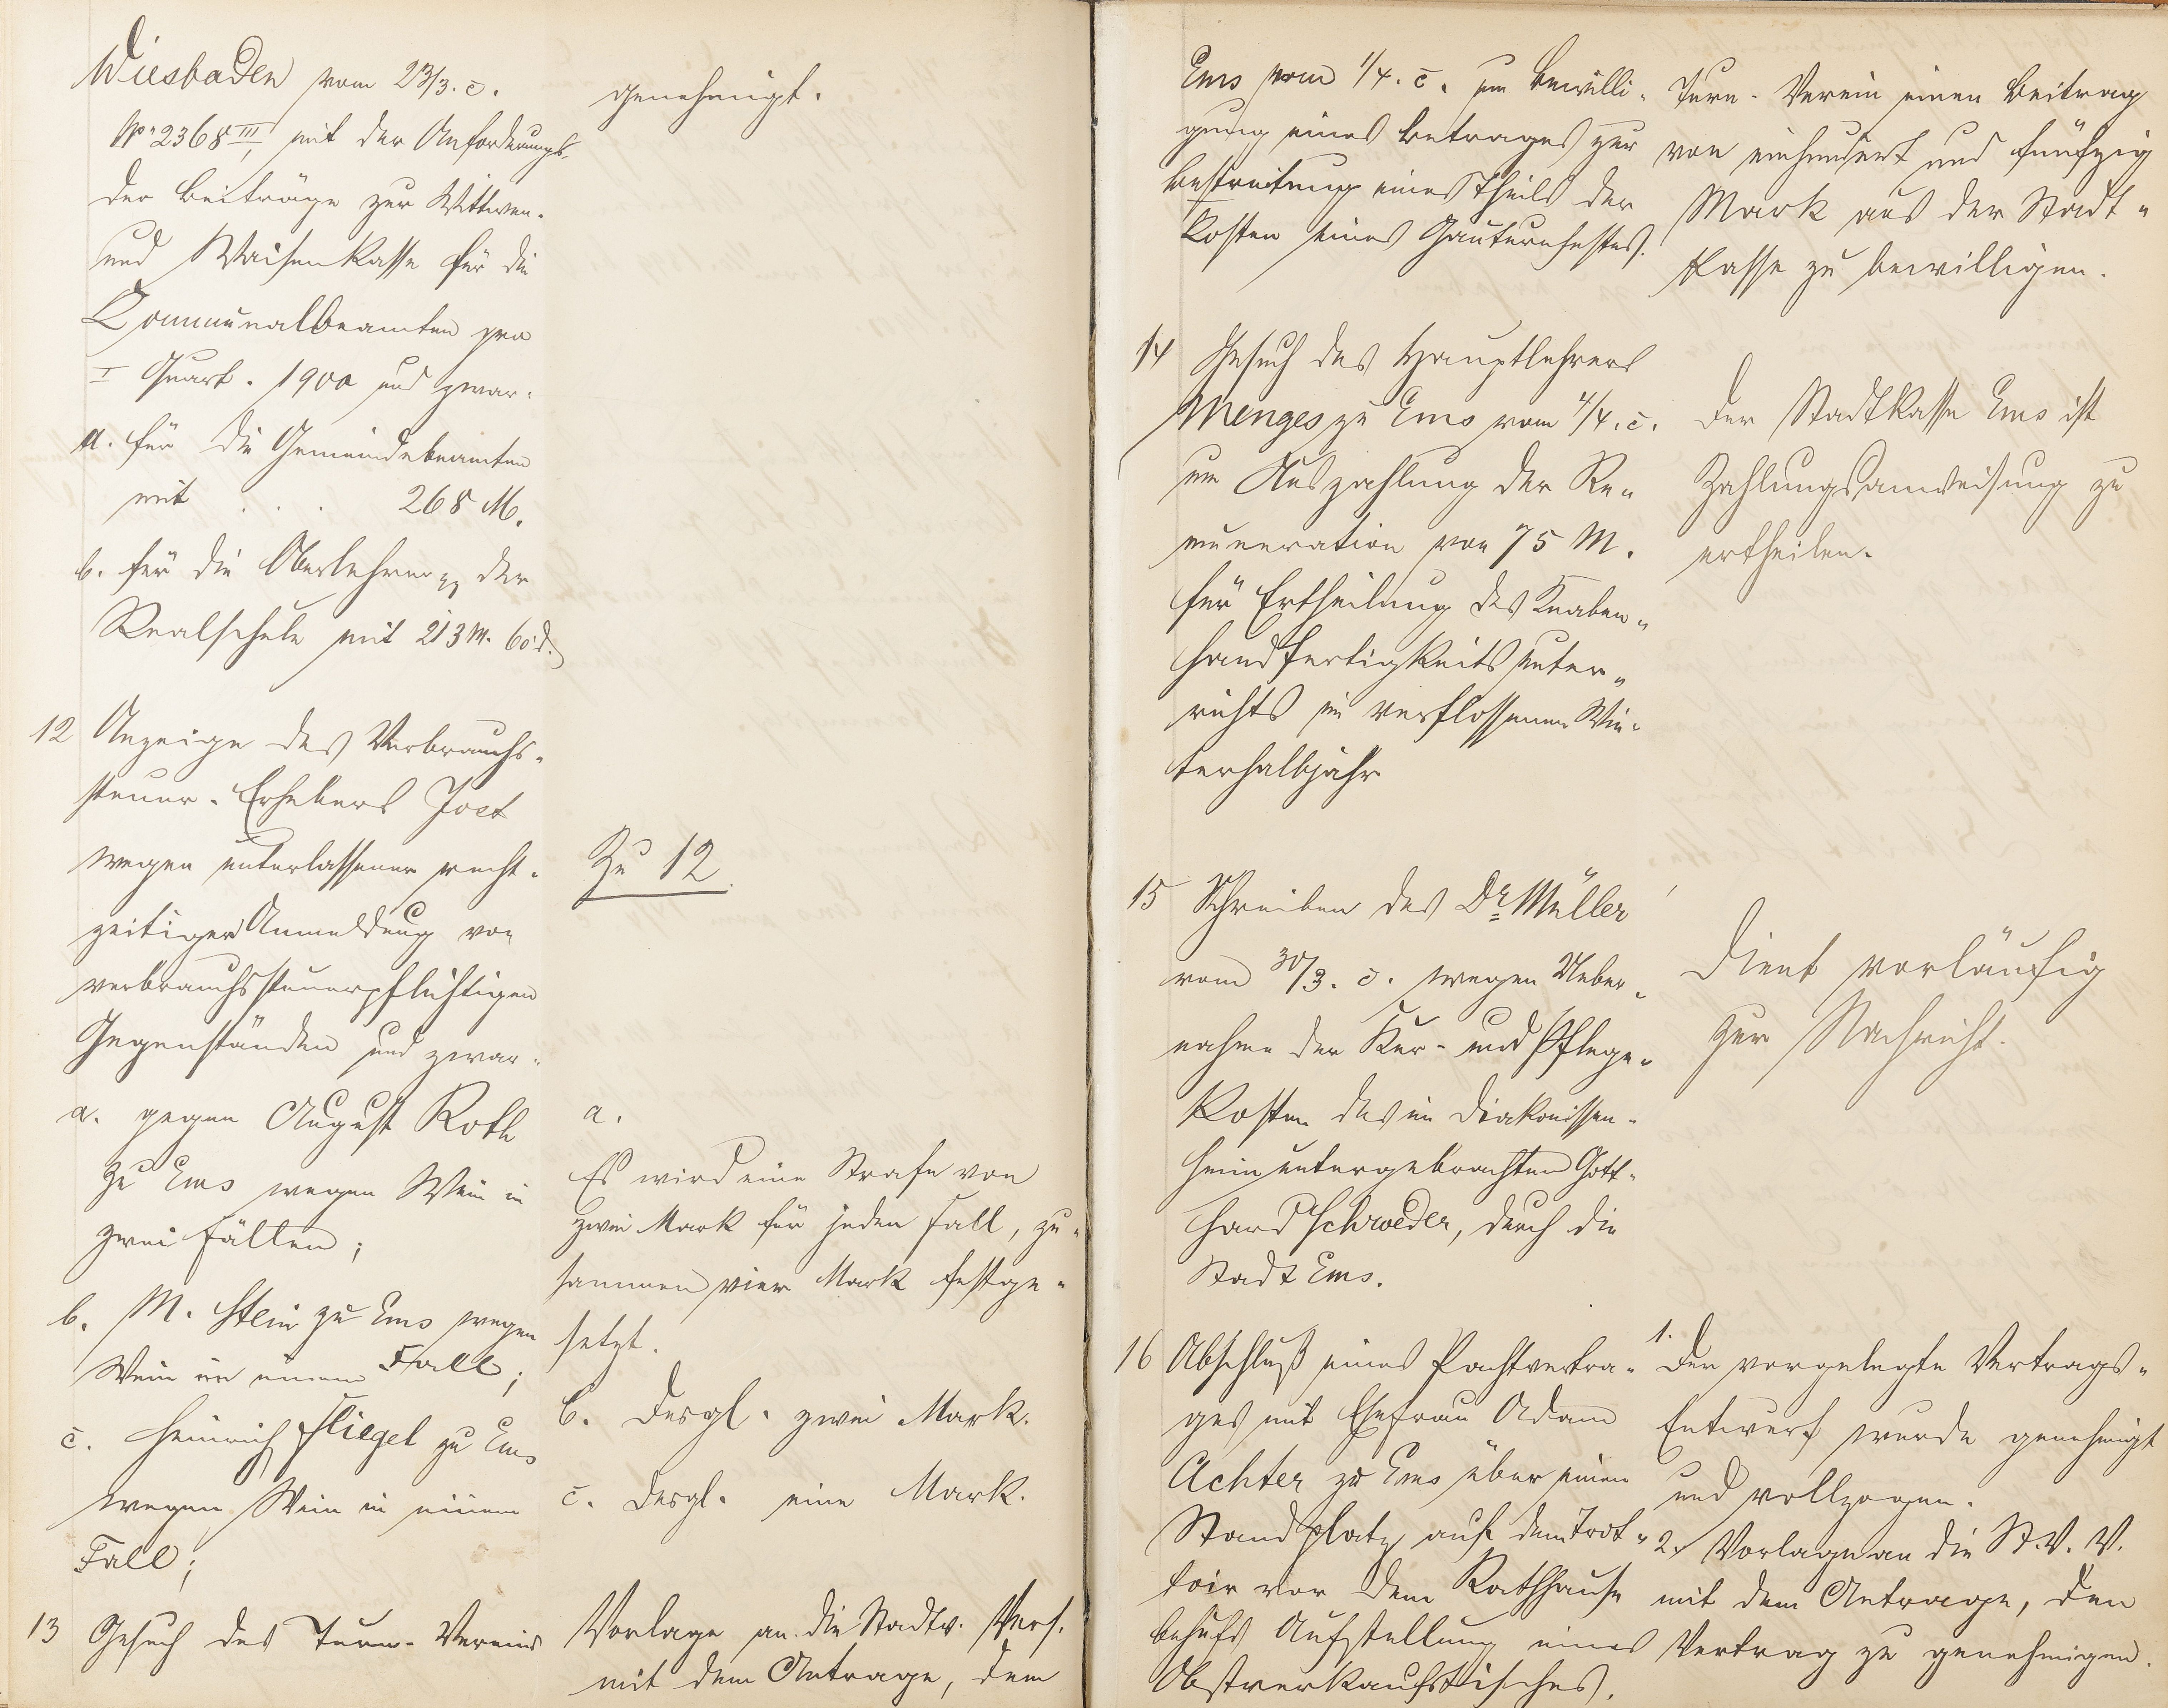 Wiesbaden vom 23/3. c.
No 2368 III, mit der Anforderungs-
der Beiträge zur Wittwen-
und Waisenkasse für die
Communalbeamten pro
I Quart. 1900 und zwar:
a. für die Gemeindebeamten
mit . . . 268 M.
b. für die Oberlehrer pp der
Realschule mit 213 M. 60 d.
genehmigt.
12 Anzeige des Verbrauchs-
steuer-Erhebers Jost
wegen unterlassener recht-
zeitiger Anmeldung von
verbrauchssteuerpflichtigen
Gegenständen und zwar:
a. gegen August Roth
zu Ems wegen Wein in
zwei Fällen;
b. M. Stein zu Ems wegen
Wein in einem Fall;
c. Heinrich Fliegel zu Ems
wegen Wein in einem
Fall;
Zu 12.
a.
Es wird eine Strafe von
zwei Mark für jeden Fall, zu-
sammen vier Mark festge-
setzt.
b. desgl. zwei Mark.
c. desgl. eine Mark.
13 Gesuch des Turn-Vereins
Vorlage an die Stadtv. Vers.
mit dem Antrage, dem
Ems vom 1/4. c. um Bewilli-
gung eines Betrages zur
Bestreitung eines Theils der
Kosten eines Gauturnfestes.
Turn-Verein einen Beitrag
von einhundert und fünfzig
Mark aus der Stadt-
kasse zu bewilligen.
14 Gesuch des Hauptlehrers
Menges zu Ems vom 4/4. c.
um Auszahlung der Re-
muneration von 75 M.
für Ertheilung des Knaben-
handfertigkeitsunter-
richts im verflossenen Win-
terhalbjahr
Der Stadtkasse Ems ist
Zahlungsanweisung zu
ertheilen.
15 Schreiben des Dr. Müller
vom 30/3. c. wegen Ueber-
nahme der Kur- und Pflege-
kosten des im Diakonissen-
heim untergebrachten Gott-
hard Schroeder, durch die
Stadt Ems.
Dient vorläufig
zur Nachricht.
16 Abschluß eines Pachtvertra-
ges mit Ehefrau Adam
Achter zu Ems über einen
Standplatz auf dem Trot-
toir vor dem Rathhause
behufs Aufstellung eines
Obstverkaufstisches.
1.
Der vorgelegte Vertrags-
Entwurf wurde genehmigt
und vollzogen.
2. Vorlage an die St. V. V.
mit dem Antrage, den
Vertrag zu genehmigen.